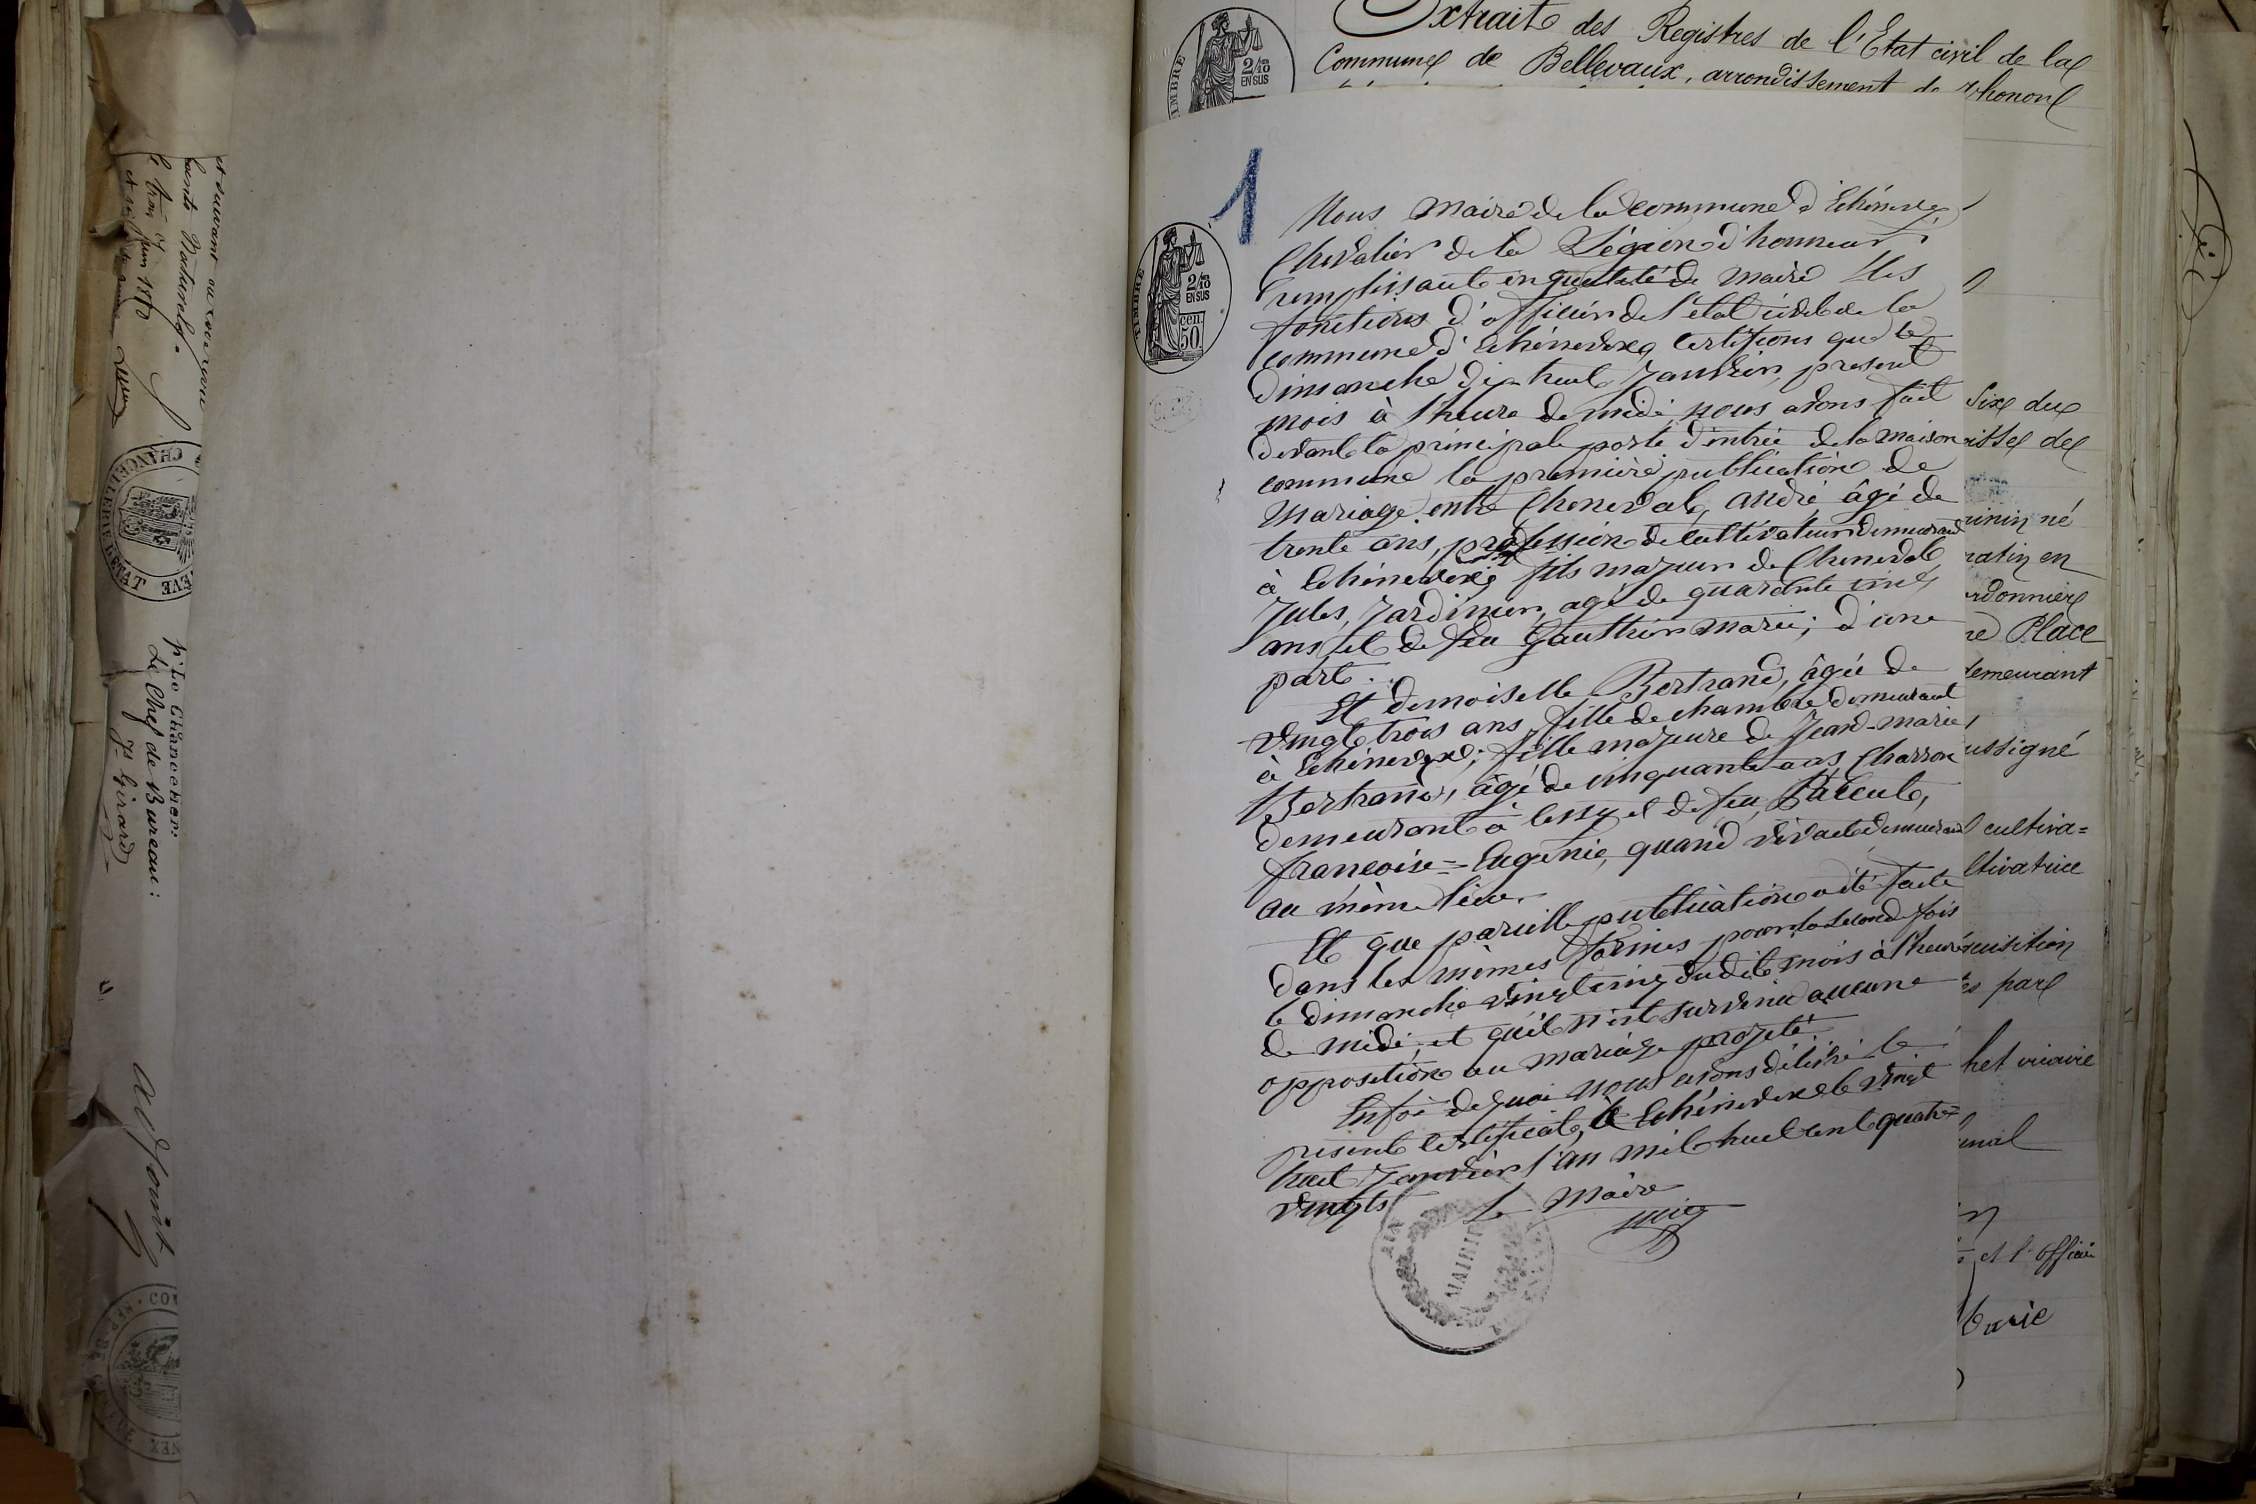 et suivant
Sainte Naturelle.
le trois Juin 1870
CHANCELLERIE D'ETAT
Pr Le Chancelier:
Le Chef de Bureau:
Js Girard
Adjoint
Extrait des Registres de l'Etat civil de la
Commune de Bellevaux, arrondissement de Thonon
TIMBRE
2/10
EN SUS
1
TIMBRE
2/10
EN SUS
cen.
50.
Nous Maire de la commune d'Echénevex,
Chevalier de la Légion d'honneur,
remplissant en qualité de maire les
fonctions d'officier de l'état civil de la
commune d'Echénevex, certifions que le
Dimanche dix huit Janvier, présent
mois à l'heure de midi, nous avons fait
devant la principale porte d'entrée de la maison
commune la première publication de
Mariage entre Cheneval, André, âgé de
trente ans, profession de cultivateur demeurant
à Echénevex, fils majeur de Cheneval
Jules, Jardinier, agé de quarante cinq
ans et de feu Gauthier Marie; d'une
part.
Et demoiselle Bertrand, âgée de
vingt trois ans, fille de chambre demeurant
à Echénevex; fille majeure de Jean-marie,
Bertrand, âgé de cinquante ans, Charron
demeurant à Cessy et de feu,
francoise=Eugénie, quand vivait demeurant
au même lieu.
Et que pareille publication a été faite
dans les mêmes formes pour la seconde fois
le dimanche vingt cinq dudit mois à l'heure
de midi, et qu'il n'est survenu aucune
opposition au mariage projeté.
En foi de quoi nous avons délivré le
présent certificat, à Echénevex le vingt
huit Janvier l'an mil huit cent quatre=
vingts
Le Maire
MAIRIE
AIN
Six du
né
matin en
Place
demeurant
cultiva=
ltivatrice
par
et l'officier